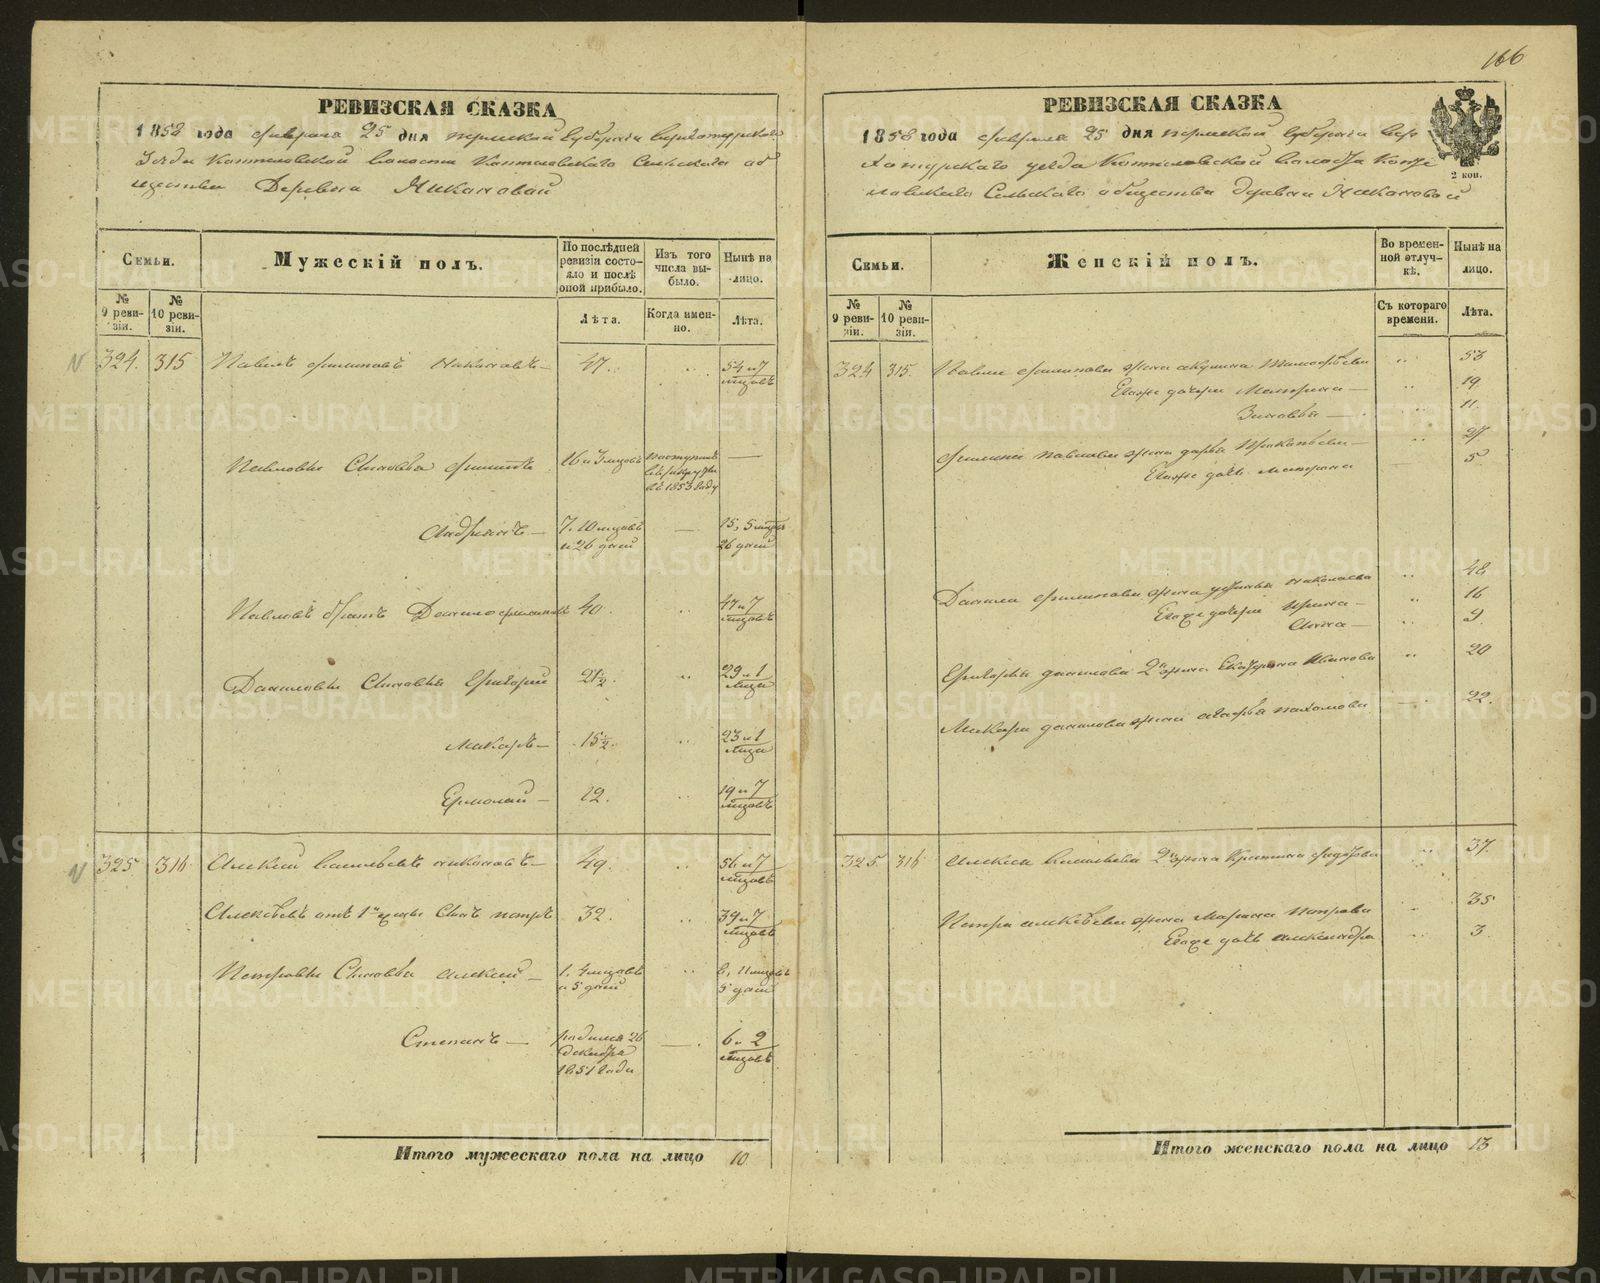 166
РЕВИЗСКАЯ СКАЗКА
1858 года февраля 25 дня Пермской Губернiи Верхотурскаго
Уезда Коптеловской волости Коптеловскаго Сельскаго об
щества Деревни Никоновой
Семьи.
Мужескiй полъ.
По послѣдней ревизiи состояло и послѣ оной прибыло.
Изъ того числа выбыло.
Нынѣ на лицо.
№ 9 ревизiи.
№ 10 ревизiи.
Лѣта.
Когда именно.
Лѣта.
324. 315 Павелъ Филиповъ Никоновъ — 47. 54 и 7 мцовъ
Павловы Сыновья Филипъ 16 и 3 мцовъ поступилъ в рекруты въ 1853 году —
Андреянъ — 7. 10 мцовъ и 26 дней — 15, 5 мцовъ 26 дней
Павловъ братъ Данило Филиповъ 40 47 и 7 мцовъ
Даниловы Сыновья Григорий 21½. 29 и 1 мца
Макаръ — 15½. 23 и 1 мца
Ермолай — 12. 19 и 7 мцовъ
325 316 Алексей Васильевъ Никоновъ — 49. 56 и 7 мцовъ
Алексѣевъ отъ 1й жены Сынъ Петръ 32. 39 и 7 мцовъ
Петровы Сыновья Алексей — 1. 4 мцовъ и 5 дней 6, 11 мцовъ 5 дней
Степанъ — родился 26 декабря 1851 года — 6 и 2 мцовъ
Итого мужескаго пола на лицо 10
РЕВИЗСКАЯ СКАЗКА
2 коп.
1858 года февраля 25 дня Пермской Губернiи Вер
хотурскаго уезда Коптеловской волости Копте
ловскаго Сельскаго общества Деревни Никоновой
Семьи.
Женскiй полъ.
Во временной отлучкѣ.
Нынѣ на лицо.
№ 9 ревизiи.
№ 10 ревизiи.
Съ котораго времени.
Лѣта.
324 315. Павла Филипова жена Акулина Тимофѣева 53
Егоже дочери Матрена — 19
Зиновья — 11.
Филипа Павлова жена Дарья Прокопьева — 27
Егоже дочь Матрена 5
Данила Филипова жена Устинья Николаева 48
Егоже дочери Ирина — 16
Анна — 9
Григорья Данилова 2я жена Екатерина Иванова 20
Макара Данилова жена Агафья Пахомова — 22.
325. 316 Алексея Васильева 2я жена Кристина Федорова 37
Петра Алексѣева жена Марина Петрова 35
Егоже дочь Александра 3
Итого женскаго пола на лицо 13
METRIKI.GASO-URAL.RU